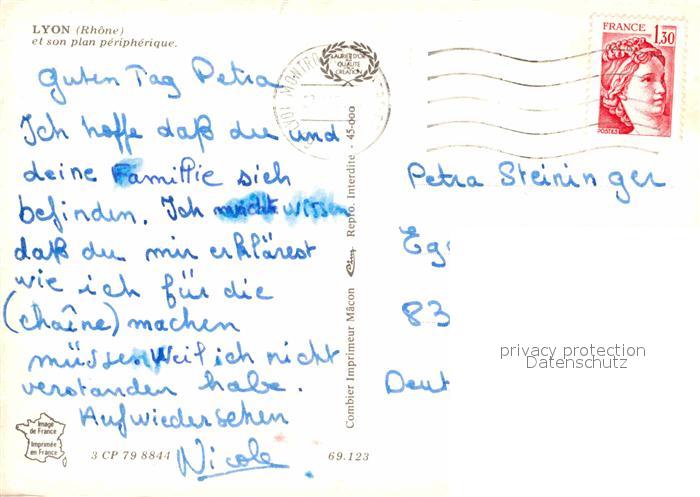 LYON (Rhône)
et son plan périphérique.
Guten Tag Petra
Ich hoffe daß du und
deine Familie sich
befinden. Ich möchte wissen
daß du mir erklärest
wie ich für die
(chaîne) machen
müssen weil ich nicht
verstanden habe.
Aufwiedersehen
Nicole
Image
de France
Imprimée
en France
3 CP 79 8844
69.123
Combier Imprimeur Mâcon
Cim
Repro. Interdite - 45-000
LAURIER D'OR
QUALITÉ
CRÉATION
FRANCE
1,30
POSTES
Petra Steininger
Eg
83
Deut
privacy protection
Datenschutz